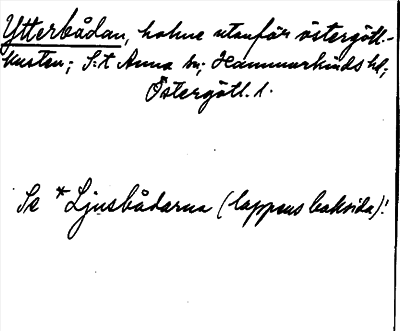 Ytterbådan, holme utanför östergötl.-
kusten; S:t Anna sn; Hammarkinds hd;
Östergötl. l.
Se *Ljusbådarna (lappens baksida)!